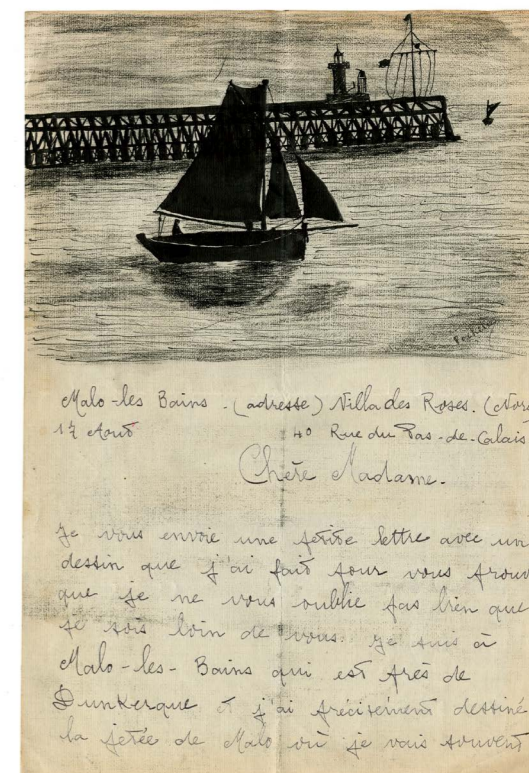 Malo-les Bains. (adresse) Villa des Roses. (Nord
17 Août 40 Rue du Pas-de-Calais
Chère Madame.
Je vous envoie une petite lettre avec un
dessin que j'ai fait pour vous prouv
que je ne vous oublie pas bien que
je sois loin de vous. Je suis à
Malo-les-Bains qui est près de
Dunkerque et j'ai précisément dessiné
la jetée de Malo où je vais souvent